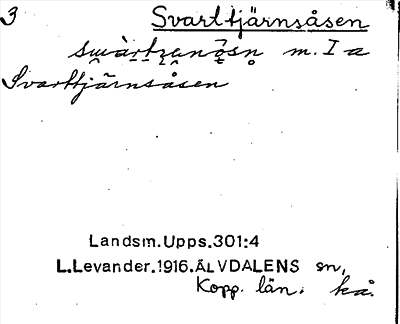 3 Svarttjärnsåsen
m. I a
Svarttjärnsåsen
Landsm. Upps. 301:4
L. Levander. 1916. ÄLVDALENS sn,
Kopp. län. kå.